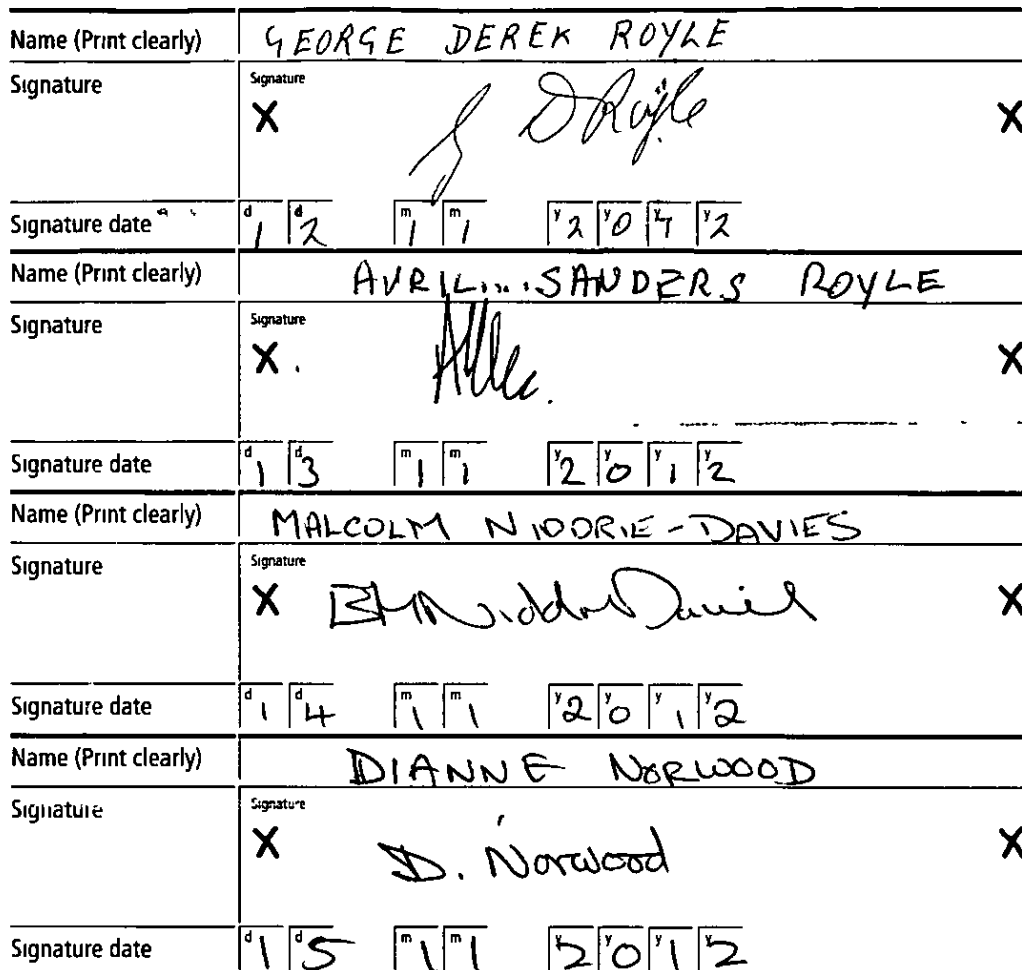 Name (Print clearly) GEORGE DEREK ROYLE
Signature Signature
X G D Royle X
Signature date d1 d2 m1 m1 y2 y0 y1 y2
Name (Print clearly) AVRIL.... SANDERS ROYLE
Signature Signature
X X
Signature date d1 d3 m1 m1 y2 y0 y1 y2
Name (Print clearly) MALCOLM NIDDRIE-DAVIES
Signature Signature
X X
Signature date d1 d4 m1 m1 y2 y0 y1 y2
Name (Print clearly) DIANNE NORWOOD
Signature Signature
X D. Norwood X
Signature date d1 d5 m1 m1 y2 y0 y1 y2